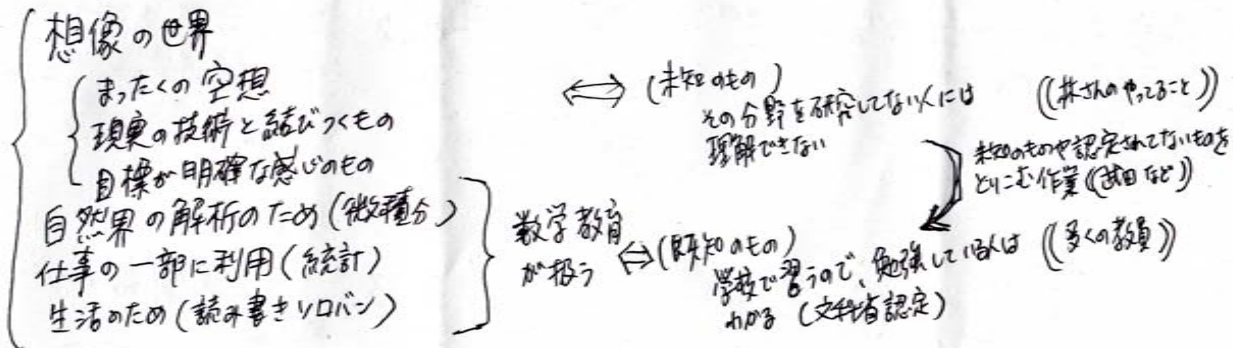 想像の世界
まったくの空想
現実の技術と結びつくもの
目標が明確な感じのもの
自然界の解析のため(微積分)
仕事の一部に利用(統計)
生活のため(読み書きソロバン)
数学教育
が扱う
⇔ (未知のもの)
その分野を研究してない人には
理解できない
((林さんのやってること))
未知のものや認定されてないものを
とりこむ作業((武田など))
⇔ (既知のもの)
学校で習うので、勉強している人は
わかる(文科省認定)
((多くの教員))